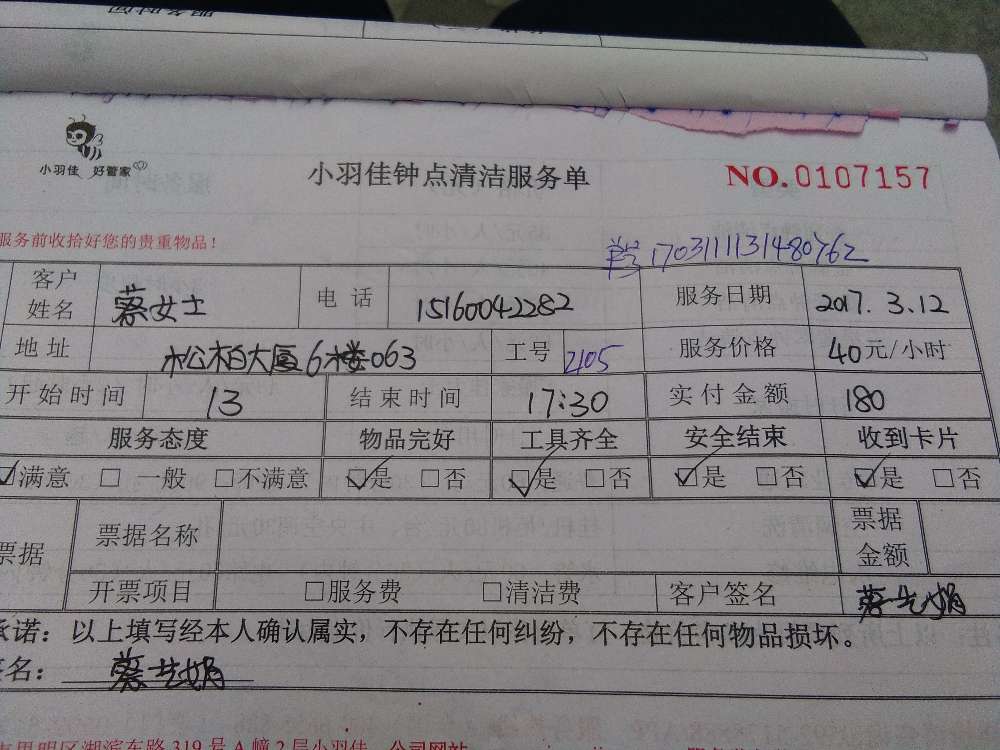 小羽佳 好管家
小羽佳钟点清洁服务单 NO.0107157
服务前收拾好您的贵重物品！
单号 1703111131480762
客户姓名 蔡女士 电话 15160042282 服务日期 2017.3.12
地址 松柏大厦6楼063 工号 2105 服务价格 40元/小时
开始时间 13 结束时间 17:30 实付金额 180
服务态度 物品完好 工具齐全 安全结束 收到卡片
☑满意 □一般 □不满意 ☑是 □否 ☑是 □否 ☑是 □否 ☑是 □否
票据 票据名称 票据金额
开票项目 □服务费 □清洁费 客户签名
承诺：以上填写经本人确认属实，不存在任何纠纷，不存在任何物品损坏。
签名：
思明区湖滨东路319号A幢2层小羽佳 公司网站